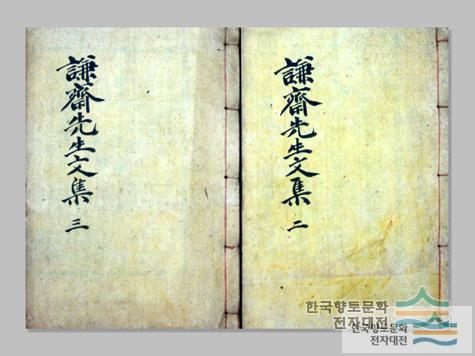 謙齋先生文集 二
謙齋先生文集 三
한국향토문화
전자대전
한국향토문화
전자대전